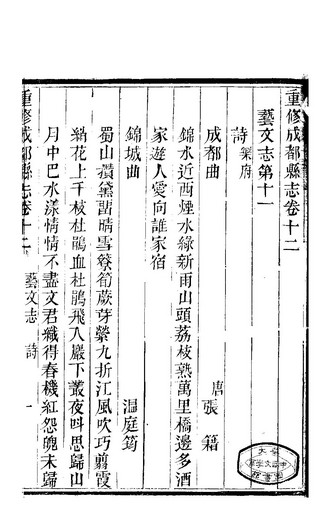 重修成都縣志卷十二
藝文志第十一
詩 樂府
成都曲 唐 張籍
錦水近西煙水綠新雨山頭荔枝熟萬里橋邊多酒
家遊人愛向誰家宿
錦城曲 溫庭筠
蜀山攢黛留晴雪簝筍蕨芽縈九折江風吹巧翦霞
綃花上千枝杜鵑血杜鵑飛入巖下叢夜呌思歸山
月中巴水漾情情不盡文君織得春機紅怨魄未歸
重修成都縣志卷十二 藝文志 詩 一